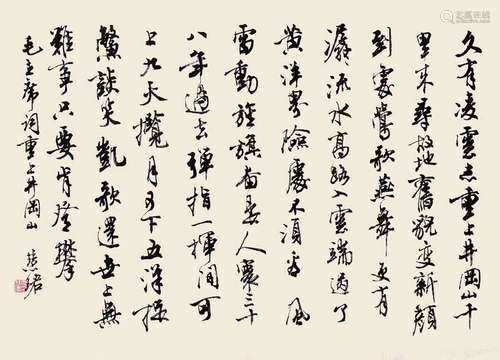 久有凌雲志重上井岡山千
里來尋故地舊貌变新顔
到處鶯歌燕舞更有
潺流水高路入雲端過了
黄洋界險處不須看風
雷動旌旗奮是人寰三十
八年過去彈指一揮间可
上九天攬月可下五洋捉
鱉談笑凱歌還世上無
難事只要肯登攀
毛主席词重上井岡山 慧珺